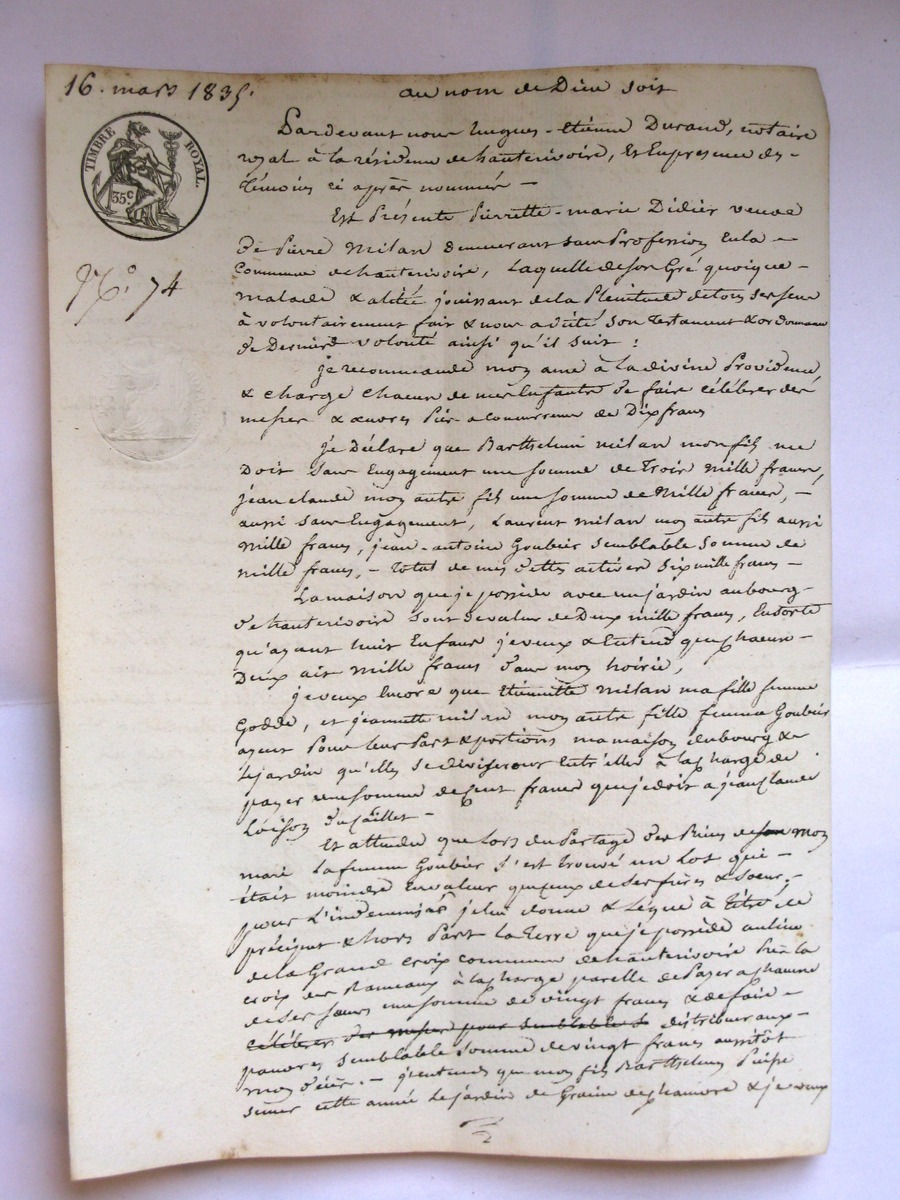 16. mars 1835.
au nom de Dieu soit
TIMBRE ROYAL.
35 c
N.o 74
Pardevant nous hugues-Etienne Durand, notaire
royal à la résidence de hauterivoire, Et En presence des-
témoins ci après nommés —
Est Présente Pierrette-marie Didier veuve
de Pierre Milan demeurant sans Profession En la -
Commune de hauterivoire, Laquelle de son Gré quoique -
malade & alitée jouissant de la Plenitude de tous ses sens
à volontairement fait & nous a dicté son testament & ordonnance
de Derniere volonté ainsi qu'il suit :
je recommande mon ame à la divine Providence
& charge chacun de mes Enfants de faire célébrer des
messes & œuvres Pies a Concurrence de Dix francs
je Déclare que Barthelemi milan mon fils me
Doit sans Engagement une somme de trois mille francs,
jean claude mon autre fils une somme de Mille francs, -
aussi sans Engagement, Laurent milan mon autre fils aussi
mille francs, jean-antoine Goubier semblable somme de
mille francs, - total de mes dettes actives six mille francs -
La maison que je possède avec un jardin au bourg-
de hauterivoire sont de valeur de Deux mille francs, En sorte
qu'ayant huit Enfans je veux & Entend que chacun -
Deux ait mille francs dans mon hoirie,
je veux Encore que Etiennette Milan ma fille femme
Godde, et jeannette milan mon autre fille femme Goubier
ayent Pour leur Part & portions ma maison du bourg & le
jardin qu'elles se diviseront Entr'elles à la charge de
payer une somme de cent francs que je doit a jean claude
Loison du
Et attendu que Lors du Partage des Biens de son mon
mari La femme Goubier s'est trouvé un Lot qui -
était moindre En valeur que ceux de ses frères & sœurs, -
pour L'indemniser je lui donne & Lègue à titre de
préciput & hors Part la terre que je possède au lieu
de la Grand croix commune de hauterivoire Près la
croix des Rameaux à la charge par elle de Payer a chacune
de ses sœurs une somme de vingt francs & de faire -
célébrer des messes pour semblable s distribuer aux -
pauvres semblable somme de vingt francs aussitôt
mon décès. - j'entends que mon fils Barthelemi Puisse
semer cette année Le jardin de Graine de chanvre & je veux